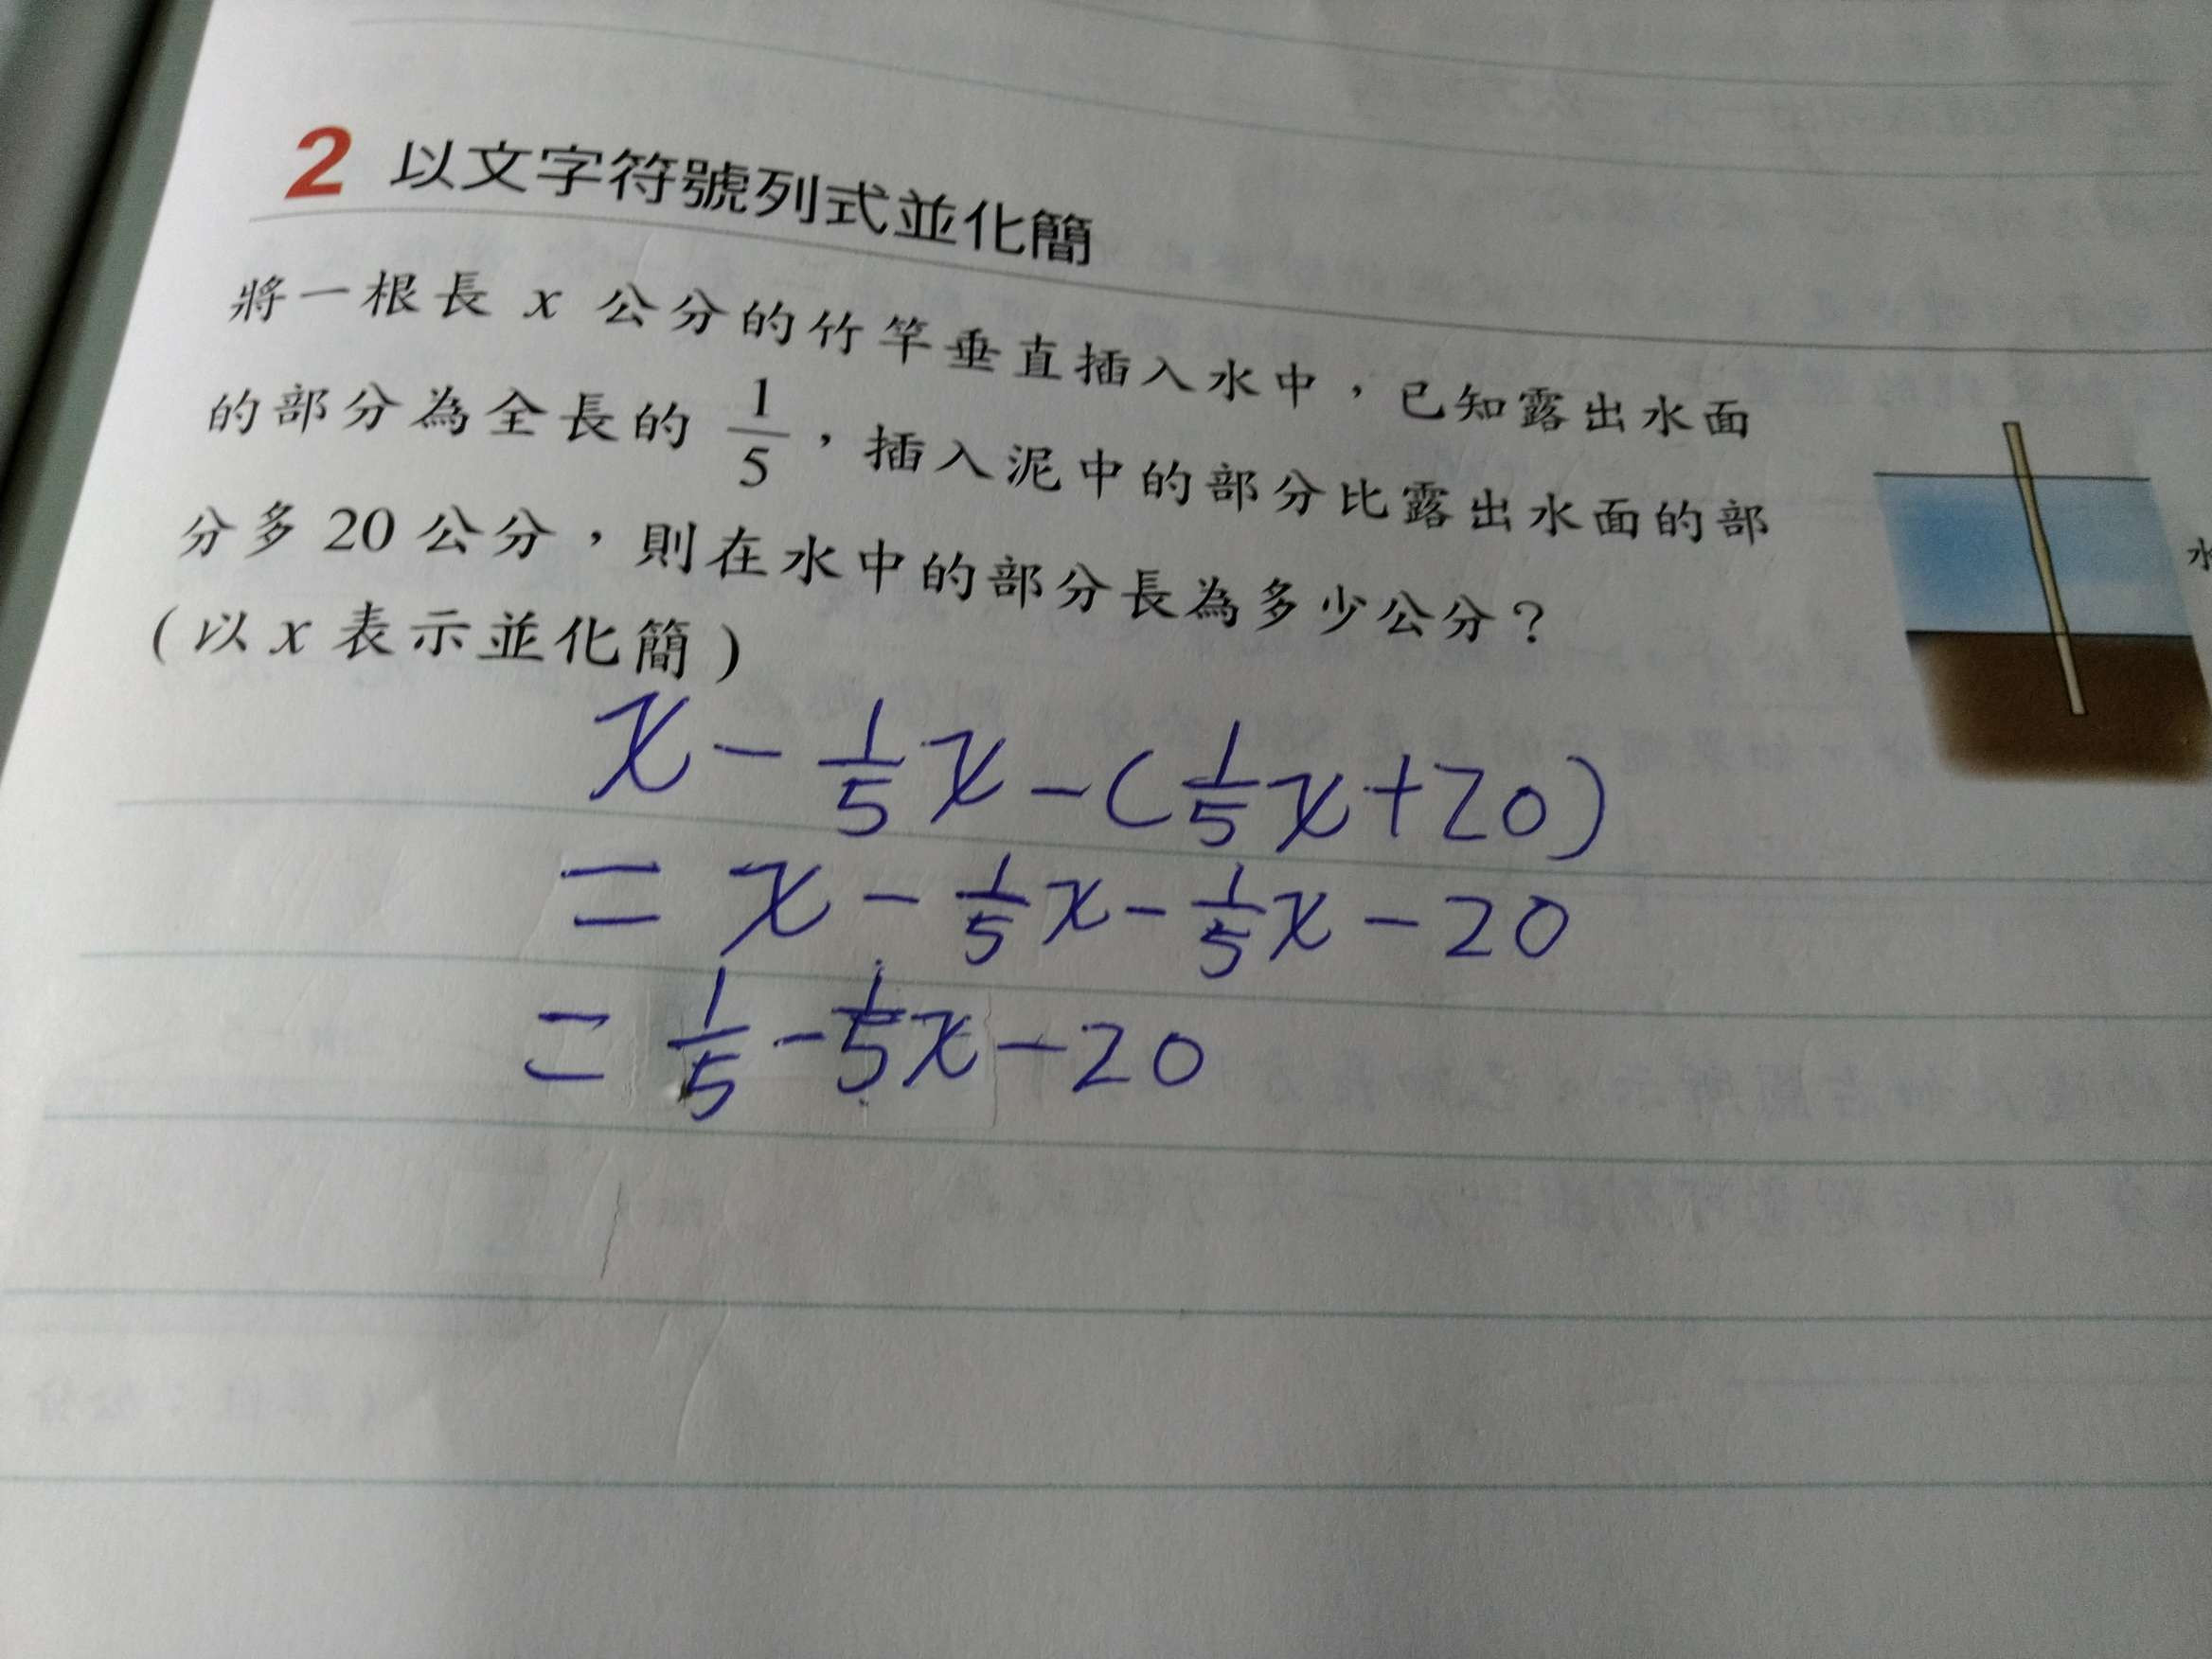 2 以文字符號列式並化簡
將一根長 x 公分的竹竿垂直插入水中，已知露出水面
的部分為全長的 1/5，插入泥中的部分比露出水面的部
分多 20 公分，則在水中的部分長為多少公分？
（以 x 表示並化簡）
x - 1/5 x - (1/5 x + 20)
= x - 1/5 x - 1/5 x - 20
= 1/5 - 1/5 x - 20